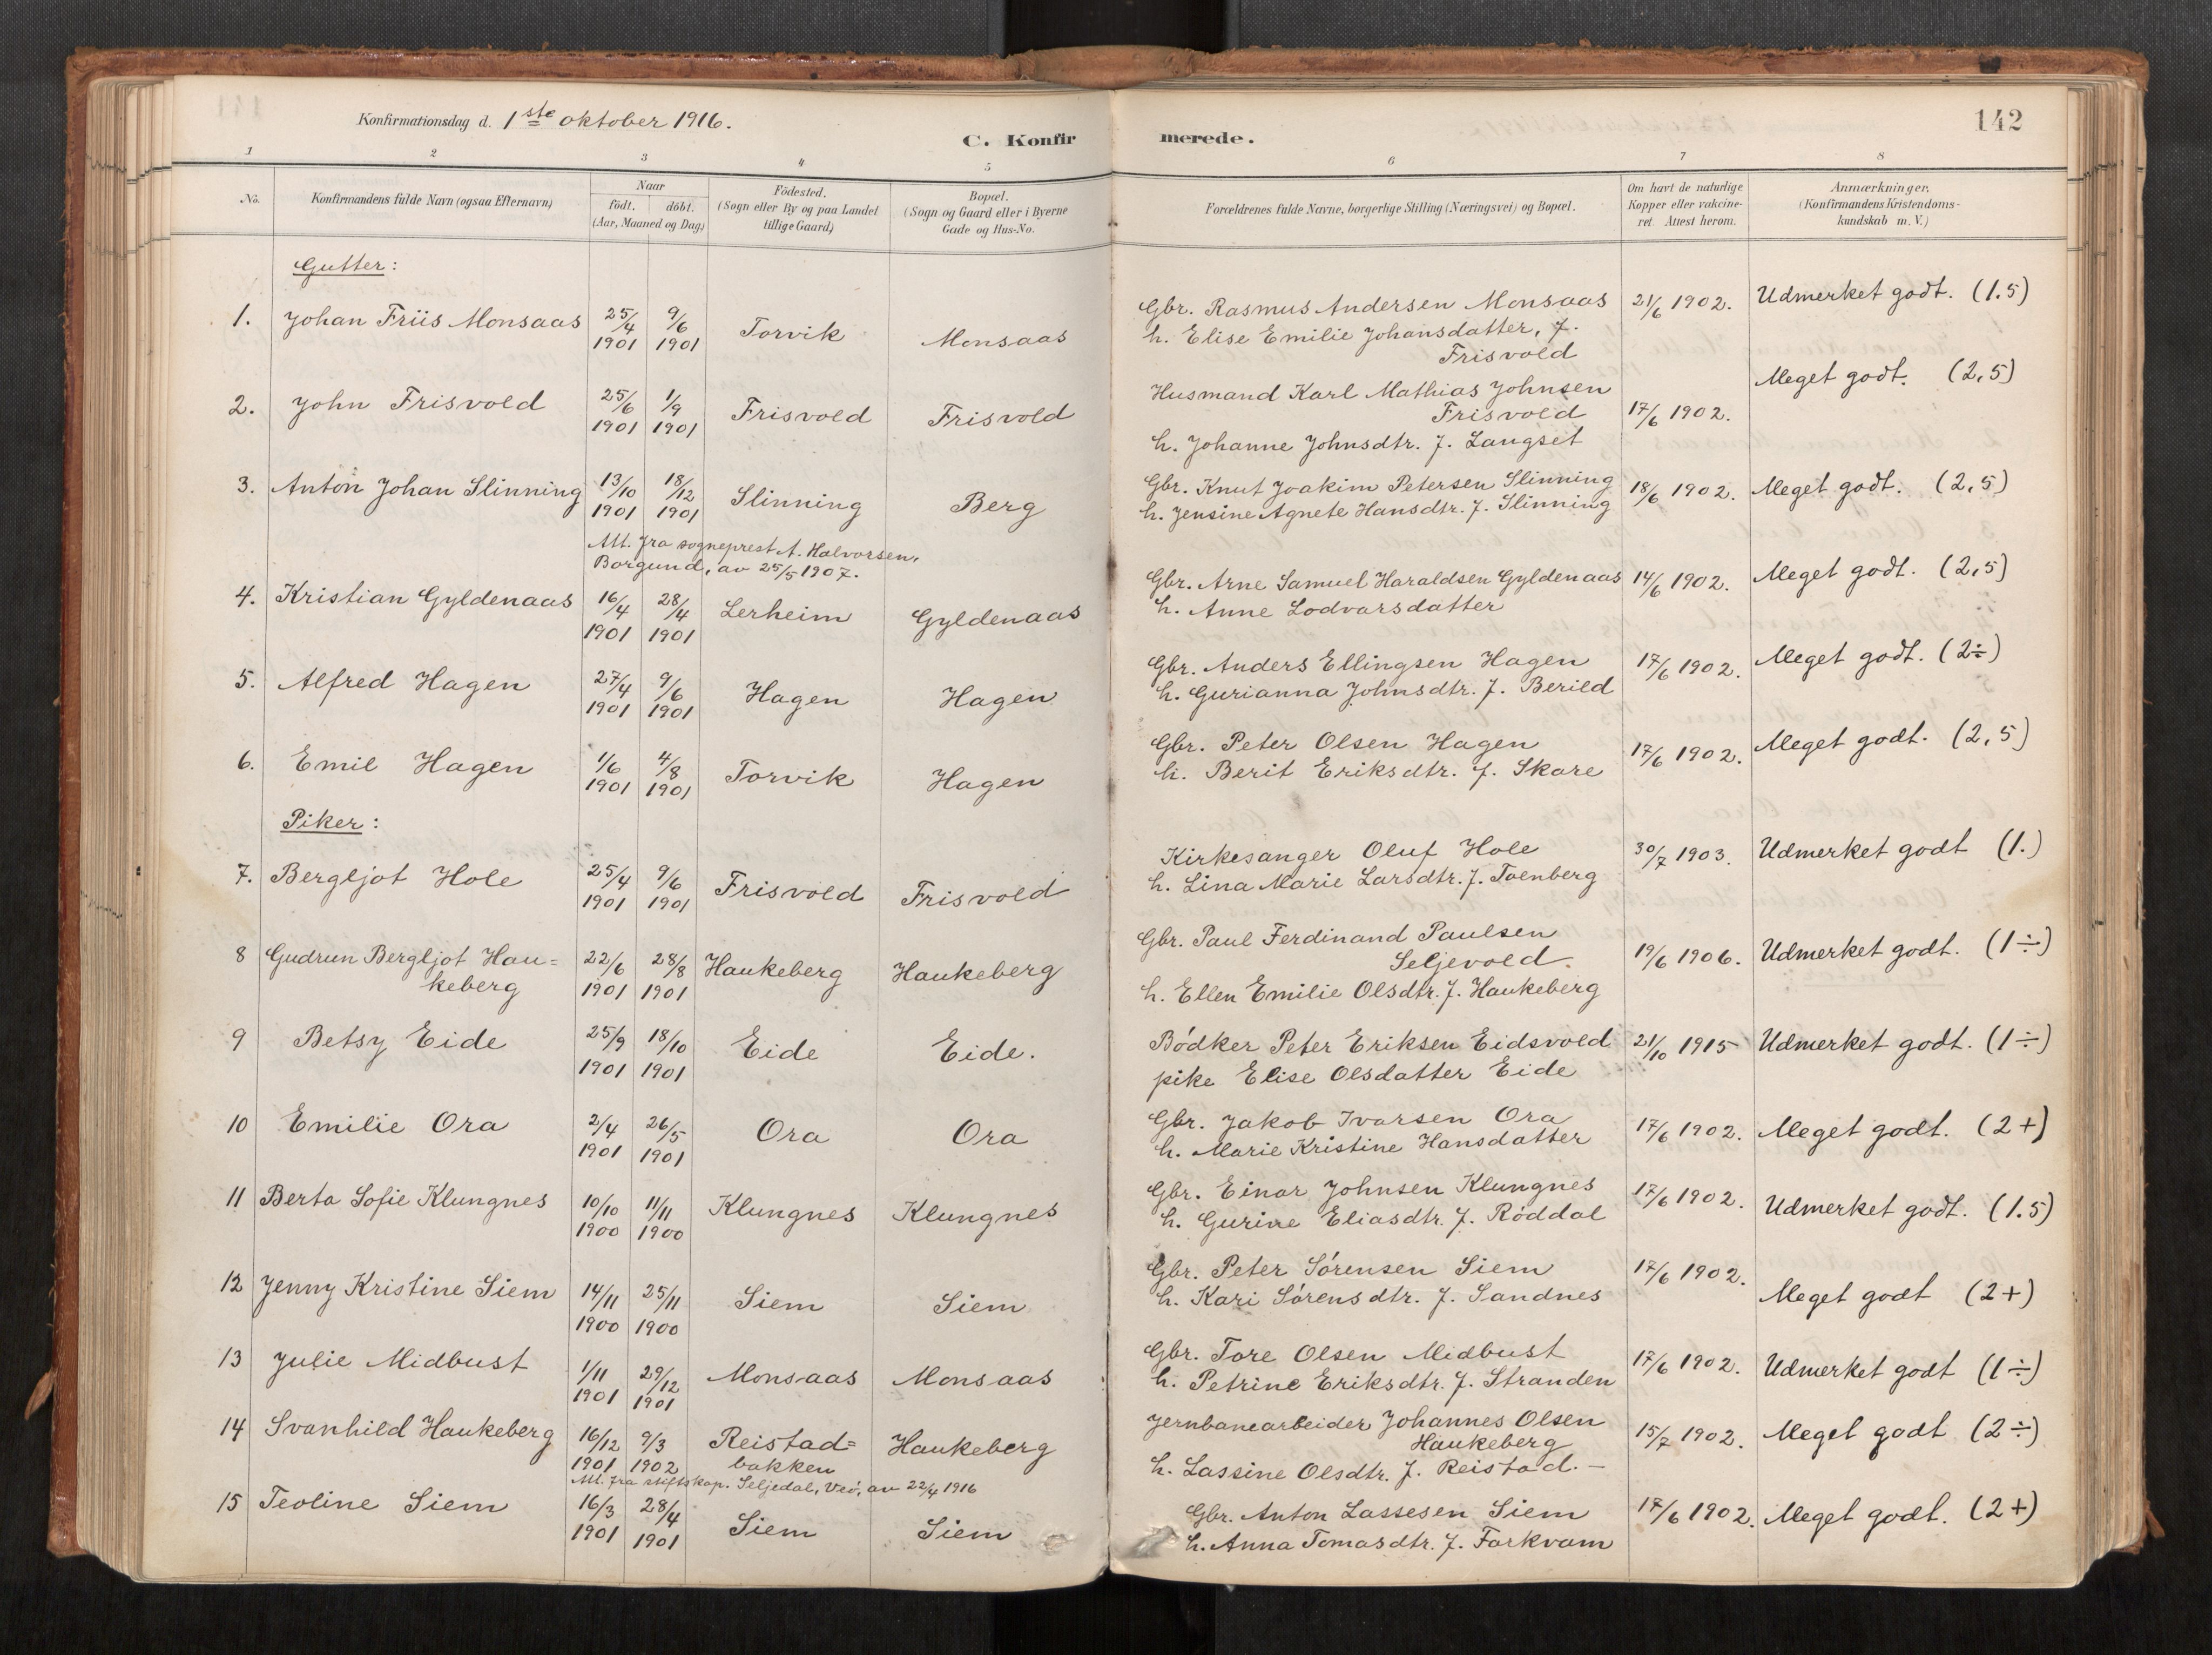 Konfirmationsdag d. 1ste oktober 1916.
C. Konfirmerede.
142
1 2 3 4 5 6 7 8
No.
Konfirmandens fulde Navn (ogsaa Efternavn)
Naar
födt. döbt.
(Aar, Maaned og Dag)
Födested.
(Sogn eller By og paa Landet
tillige Gaard)
Bopæl.
(Sogn og Gaard eller i Byerne
Gade og Hus-No.
Forældrenes fulde Navne, borgerlige Stilling (Næringsvei) og Bopæl.
Om havt de naturlige
Kopper eller vakcine-
ret. Attest herom.
Anmærkninger.
(Konfirmandens Kristendoms-
kundskab m. V.)
Gutter:
1. Johan Friis Monsaas 25/4 1901 9/6 1901 Torvik Monsaas
Gbr. Rasmus Andersen Monsaas 21/6 1902. Udmerket godt. (1.5)
h. Elise Emilie Johansdatter, f.
Frisvold
2. John Frisvold 25/6 1901 1/9 1901 Frisvold Frisvold
Husmand Karl Mathias Johnsen Meget godt. (2,5)
Frisvold 17/6 1902.
h. Johanne Johnsdtr. f. Langset
3. Anton Johan Slinning 13/10 1901 18/12 1901 Slinning Berg
Gbr. Knut Joakim Petersen Slinning 18/6 1902. Meget godt. (2,5)
h. Jensine Agnete Hansdtr. f. Slinning
Att. fra sogneprest A. Halvorsen,
Borgund, av 25/5 1907.
4. Kristian Gyldenaas 16/4 1901 28/4 1901 Lerheim Gyldenaas
Gbr. Arne Samuel Haraldsen Gyldenaas 14/6 1902. Meget godt. (2,5)
h. Anne Lodvarsdatter
5. Alfred Hagen 27/4 1901 9/6 1901 Hagen Hagen
Gbr. Anders Ellingsen Hagen 17/6 1902. Meget godt. (2÷)
h. Gurianna Johnsdtr. f. Berild
6. Emil Hagen 1/6 1901 4/8 1901 Torvik Hagen
Gbr. Peter Olsen Hagen 17/6 1902. Meget godt. (2,5)
h. Berit Eriksdtr. f. Skare
Piker:
7. Bergljot Hole 25/4 1901 9/6 1901 Frisvold Frisvold
Kirkesanger Oluf Hole 30/7 1903. Udmerket godt (1.)
h. Lina Marie Larsdtr. f. Toenberg
8 Gudrun Bergljot Hau=
keberg 22/6 1901 28/8 1901 Haukeberg Haukeberg
Gbr. Paul Ferdinand Paulsen
Seljevold. 19/6 1906. Udmerket godt. (1÷)
h. Ellen Emilie Olsdtr. f. Haukeberg
9 Betsy Eide 25/9 1901 18/10 1901 Eide Eide.
Bödker Peter Eriksen Eidsvold 21/10 1915 Udmerket godt. (1÷)
pike Elise Olsdatter Eide
10 Emilie Ora 2/4 1901 26/5 1901 Ora Ora
Gbr. Jakob Ivarsen Ora 17/6 1902. Meget godt. (2+)
h. Marie Kristine Hansdatter
11 Berta Sofie Klungnes 10/10 1900 11/11 1900 Klungnes Klungnes
Gbr. Einar Johnsen Klungnes 17/6 1902. Udmerket godt. (1.5)
h. Gurine Eliasdtr. f. Röddal
12 Jenny Kristine Siem 14/11 1900 25/11 1900 Siem Siem
Gbr. Peter Sörensen Siem 17/6 1902.
h. Kari Sörensdtr. f. Sandnes Meget godt (2+)
13 Julie Midbust 1/11 1901 29/12 1901 Monsaas Monsaas
Gbr. Tore Olsen Midbust 17/6 1902. Udmerket godt (1÷)
h. Petrine Eriksdtr. f. Stranden
14 Svanhild Haukeberg 16/12 1901 9/3 1902 Reistad=
bakken Haukeberg
Jernbanearbeider Johannes Olsen
Haukeberg 15/7 1902. Meget godt (2÷)
h. Lassine Olsdtr. f. Reistad.—
Att. fra stiftskap. Seljedal, Veö, av 22/4 1916
15 Teoline Siem 16/3 1901 28/4 1901 Siem Siem
Gbr. Anton Lassesen Siem 17/6 1902. Meget godt. (2+)
h. Anna Tomasdtr. f. Farkvam